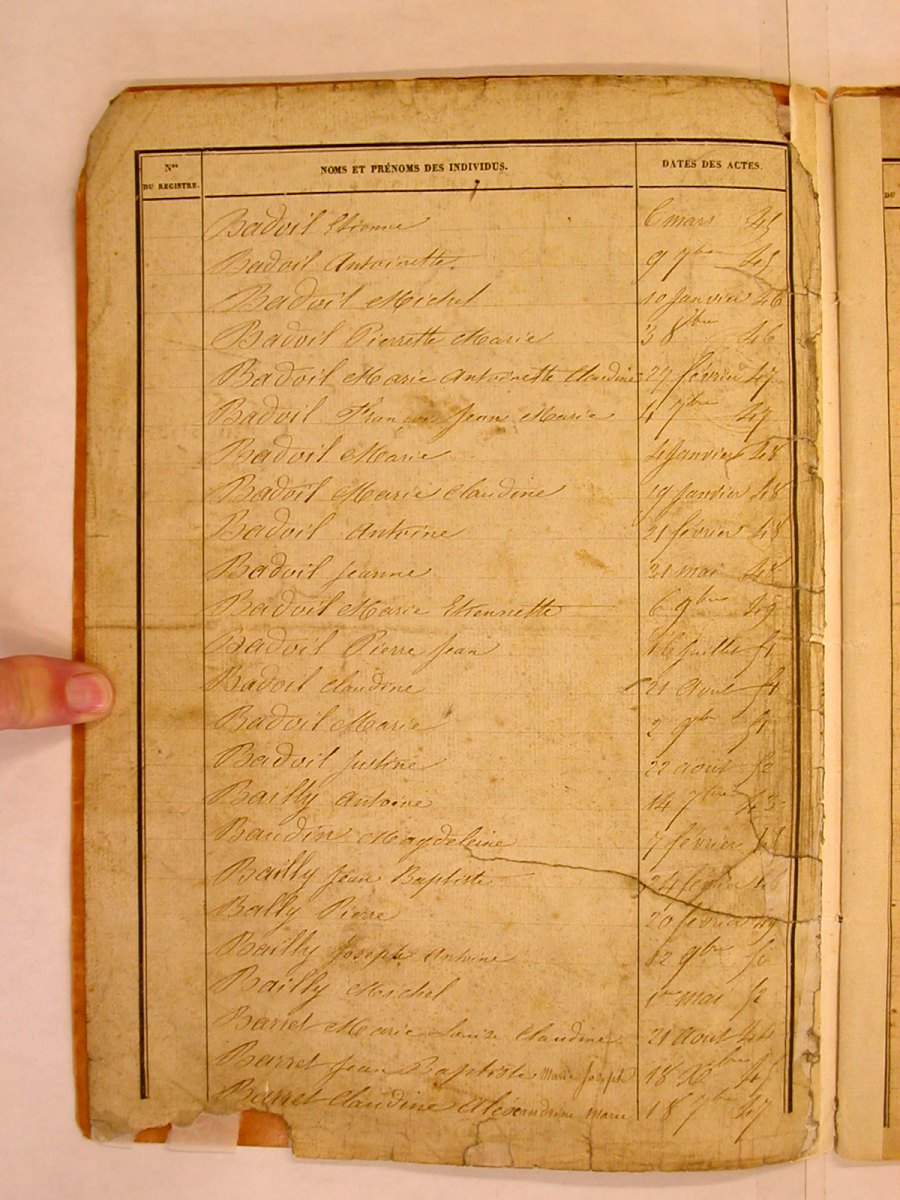 Nos DU REGISTRE.
NOMS ET PRÉNOMS DES INDIVIDUS.
DATES DES ACTES.
Badoil Etienne 6 mars 45
Badoil Antoinette 9 7bre 45
Badoil Michel 10 Janvier 46
Badoil Pierrette Marie 3 8bre 46
Badoil Marie Antoinette Claudine 27 février 47
Badoil François Jean Marie 4 7bre 47
Badoil Marie 4 Janvier 48
Badoil Marie Claudine 19 Janvier 48
Badoil Antoine 21 février 48
Badoil Jeanne 21 mai 48
Badoil Marie Etiennette 6 9bre 49
Badoil Pierre Jean 16 Juillet 51
Badoil Claudine 21 Aout 51
Badoil Marie 2 9bre 51
Badoil Justine 22 aout 52
Bailly Antoine 14 7bre 43
Baudin Magdeleine 7 février 48
Bailly Jean Baptiste 24 fevrier
Bally Pierre 20 février 49
Bailly Joseph Antoine 12 9bre 50
Bailly Michel 1er mai 52
Barret Marie Louise Claudine 21 aout 44
Barret Jean Baptiste Marie Joseph 18 Xbre 45
Barret Claudine Alexandrine Marie 18 7bre 47